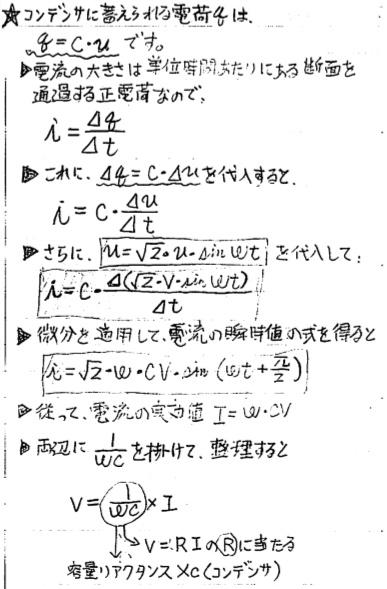 ☆コンデンサに蓄えられる電荷qは、
q=C・u です。
▷電流の大きさは単位時間あたりにある断面を
通過する正電荷なので、
i=Δq/Δt
▷これに、Δq=C・Δuを代入すると、
i=C・Δu/Δt
▷さらに、u=√2・u・sin ωt を代入して:
i=C・Δ(√2・V・sin ωt)/Δt
▷微分を適用して、電流の瞬時値の式を得ると
i=√2・ω・CV・sin (ωt+π/2)
▷従って、電流の実効値 I=ω・CV
▷両辺に 1/ωC を掛けて、整理すると
V=1/ωC×I
V=RIのRに当たる
容量リアクタンス Xc(コンデンサ)